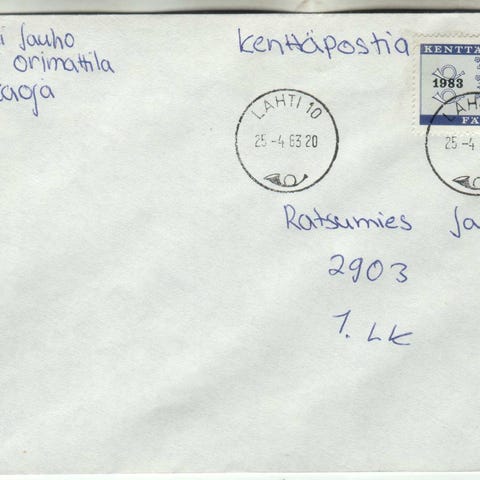 i Jauho
orimattila
Kenttäpostia
KENTTÄ
1983
FÄ
LAHTI 10
25 -4 83 20
LAHT
25 -4
Ratsumies Ja
2903
1. LK